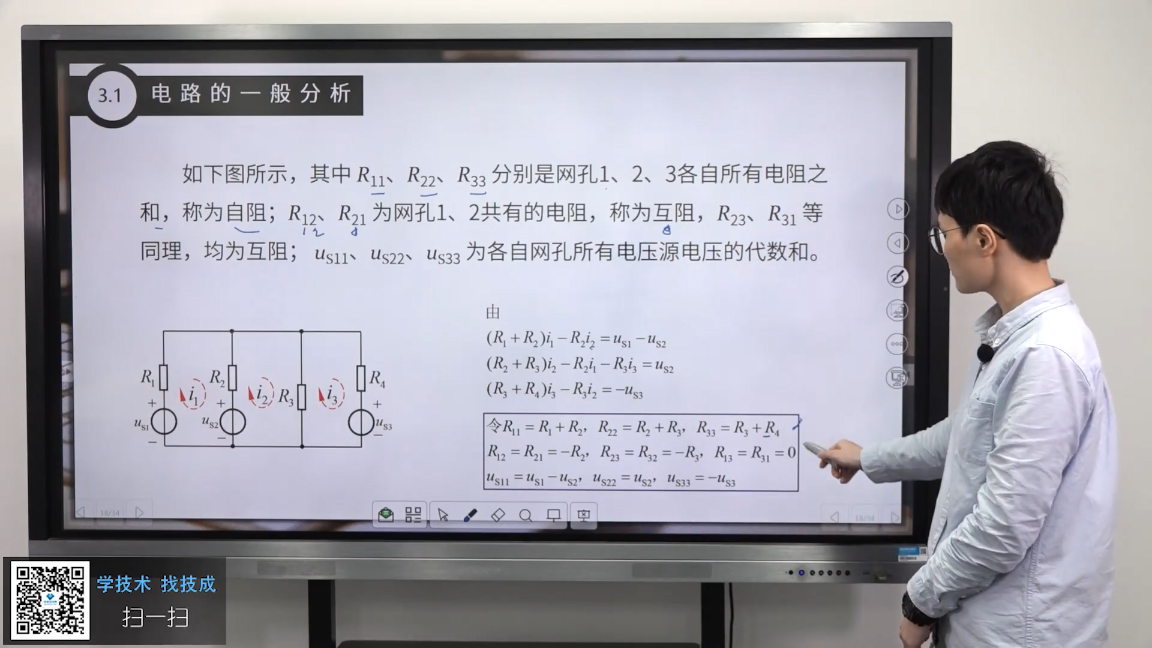 3.1 电路的一般分析
如下图所示，其中 R11、R22、R33 分别是网孔1、2、3各自所有电阻之
和，称为自阻；R12、R21 为网孔1、2共有的电阻，称为互阻，R23、R31 等
同理，均为互阻； uS11、uS22、uS33 为各自网孔所有电压源电压的代数和。
由
(R1+R2)i1−R2i2=uS1−uS2
(R2+R3)i2−R2i1−R3i3=uS2
(R3+R4)i3−R3i2=−uS3
令R11=R1+R2，R22=R2+R3，R33=R3+R4
R12=R21=−R2，R23=R32=−R3，R13=R31=0
uS11=uS1−uS2，uS22=uS2，uS33=−uS3
R1 i1 R2 i2 R3 i3 R4
+ + +
uS1 uS2 uS3
− − −
学技术 找技成
扫一扫